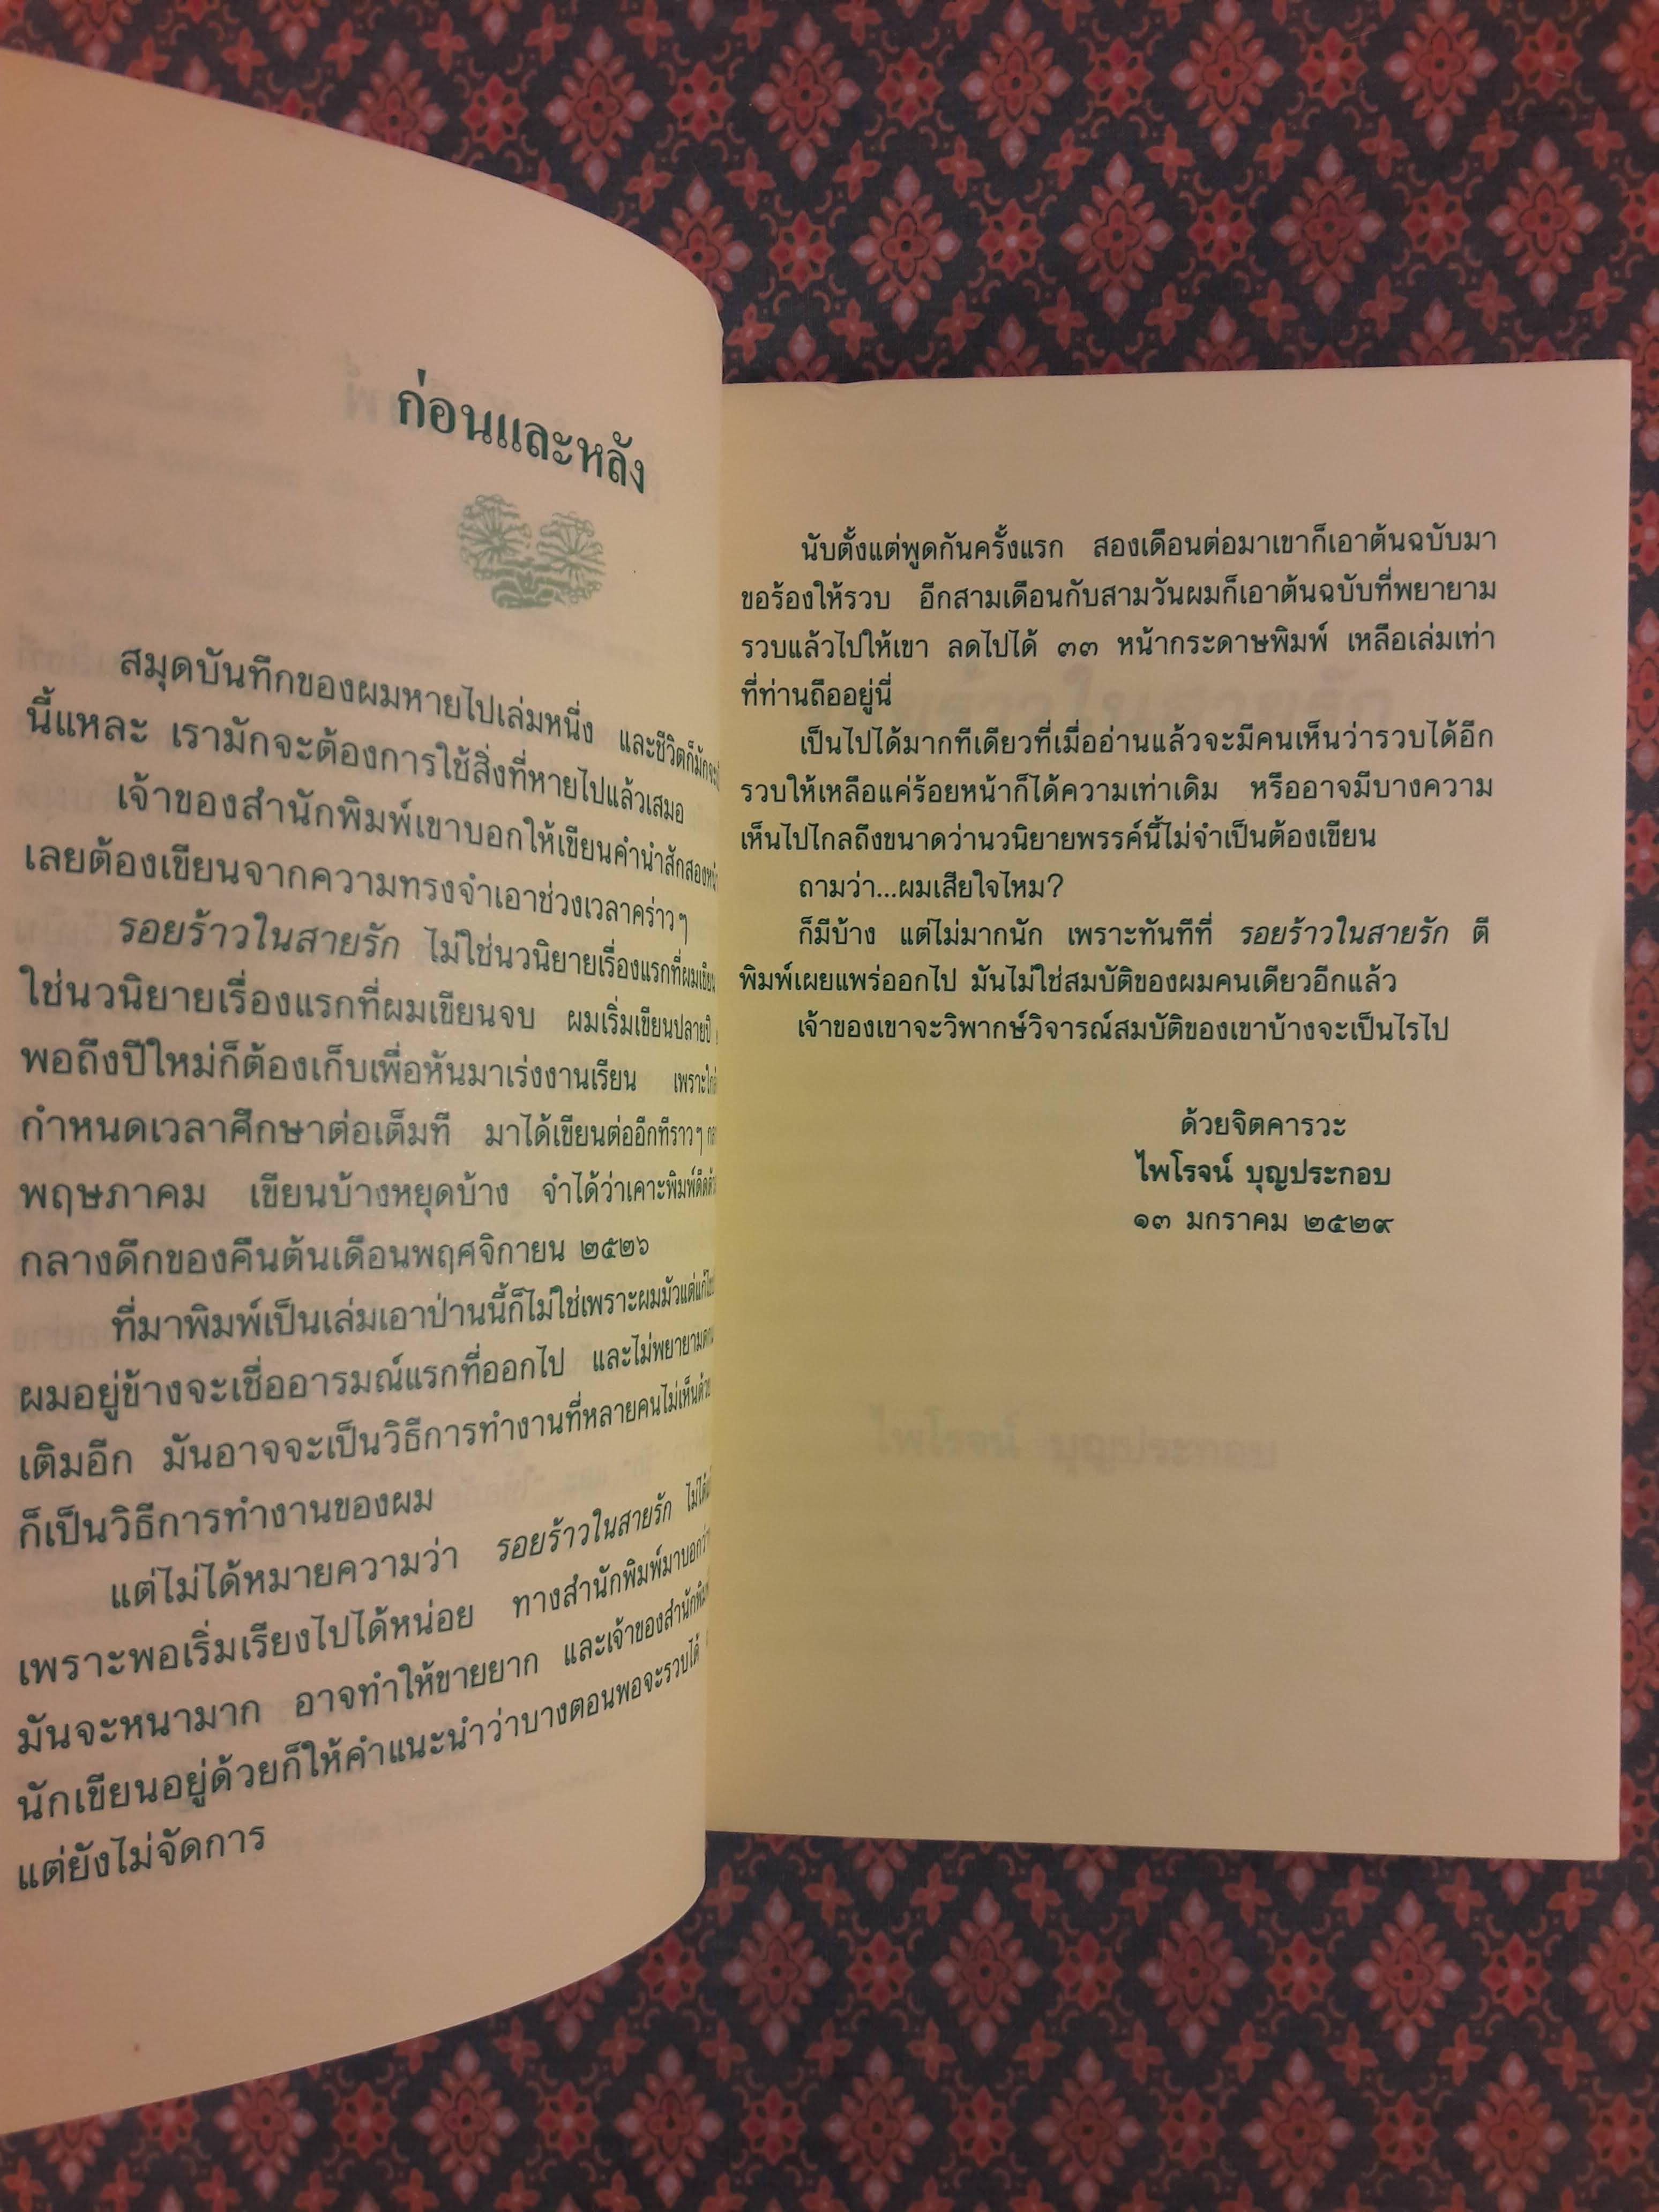 ก่อนและหลัง
สมุดบันทึกของผมหายไปเล่มหนึ่ง และชีวิตก็มักจะ
นี้แหละ เรามักจะต้องการใช้สิ่งที่หายไปแล้วเสมอ
เจ้าของสำนักพิมพ์เขาบอกให้เขียนคำนำสักสอง
เลยต้องเขียนจากความทรงจำเอาช่วงเวลาคร่าวๆ
รอยร้าวในสายรัก ไม่ใช่นวนิยายเรื่องแรกที่ผมเขียน
ใช่นวนิยายเรื่องแรกที่ผมเขียนจบ ผมเริ่มเขียนปลายปี
พอถึงปีใหม่ก็ต้องเก็บเพื่อหันมาเร่งงานเรียน เพราะ
กำหนดเวลาศึกษาต่อเต็มที มาได้เขียนต่ออีกทีราวๆ
พฤษภาคม เขียนบ้างหยุดบ้าง จำได้ว่าเคาะพิมพ์ดีด
กลางดึกของคืนต้นเดือนพฤศจิกายน ๒๕๒๖
ที่มาพิมพ์เป็นเล่มเอาป่านนี้ก็ไม่ใช่เพราะผมมัวแต่
ผมอยู่ข้างจะเชื่ออารมณ์แรกที่ออกไป และไม่พยายาม
เติมอีก มันอาจจะเป็นวิธีการทำงานที่หลายคนไม่เห็นด้วย
ก็เป็นวิธีการทำงานของผม
แต่ไม่ได้หมายความว่า รอยร้าวในสายรัก ไม่ได้
เพราะพอเริ่มเรียงไปได้หน่อย ทางสำนักพิมพ์มาบอกว่า
มันจะหนามาก อาจทำให้ขายยาก และเจ้าของสำนักพิมพ์
นักเขียนอยู่ด้วยก็ให้คำแนะนำว่าบางตอนพอจะรวบได้
แต่ยังไม่จัดการ
นับตั้งแต่พูดกันครั้งแรก สองเดือนต่อมาเขาก็เอาต้นฉบับมา
ขอร้องให้รวบ อีกสามเดือนกับสามวันผมก็เอาต้นฉบับที่พยายาม
รวบแล้วไปให้เขา ลดไปได้ ๓๓ หน้ากระดาษพิมพ์ เหลือเล่มเท่า
ที่ท่านถืออยู่นี่
เป็นไปได้มากทีเดียวที่เมื่ออ่านแล้วจะมีคนเห็นว่ารวบได้อีก
รวบให้เหลือแค่ร้อยหน้าก็ได้ความเท่าเดิม หรืออาจมีบางความ
เห็นไปไกลถึงขนาดว่านวนิยายพรรค์นี้ไม่จำเป็นต้องเขียน
ถามว่า...ผมเสียใจไหม?
ก็มีบ้าง แต่ไม่มากนัก เพราะทันทีที่ รอยร้าวในสายรัก ตี
พิมพ์เผยแพร่ออกไป มันไม่ใช่สมบัติของผมคนเดียวอีกแล้ว
เจ้าของเขาจะวิพากษ์วิจารณ์สมบัติของเขาบ้างจะเป็นไรไป
ด้วยจิตคารวะ
ไพโรจน์ บุญประกอบ
๑๓ มกราคม ๒๕๒๙